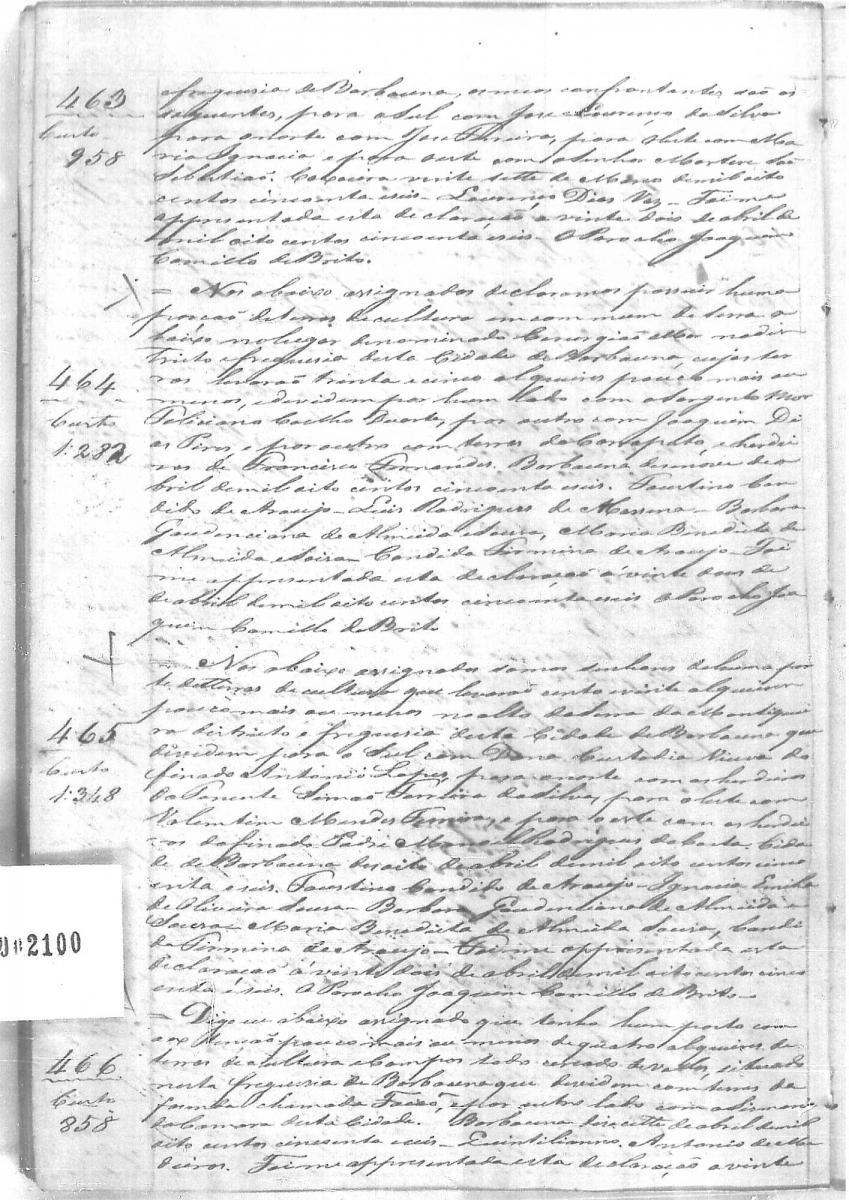 463
Custo
958
freguesia de Barbacena, os meos confrontantes são os
seguentes, para o Sul com Jose Lourenço da Silva
para o norte com Jose Ferreira, para Leste com Ma
ria Ignacia, e para oeste com
Sebastião. vinte sette de Março de mil oito
centos cincoenta eseis - Lourenço Dias Vaz - Foi me
appresentada esta declaração a vinte dois de abril de
mil oito centos cincoenta eseis. O Parocho Joaquim
Camillo de Brito.
464
Custo
1:282
- Nos abaixo assignados declaramos possuir huma
porção de terras de cultura em com mum de terra a
baixo no lugar denominado no dis
tricto e freguesia desta Cidade de Barbacena, cujas ter
ras levarão trenta e cinco alqueires pouco mais ou
menos, e dividem por hum lado com o Sargento Mor
Feliciano Coelho Duarte, por outro com Joaquim Di
as Pires, e por outro com terras do e herdei
ros de Francisco Fernandes. Barbacena desenove de a
bril de mil oito centos cincoenta eseis. Faustino Can
dido de Araujo - Luis Rodrigues de - Barbara
Gaudenciana de Almeida e Souza, Maria Benedita de
Almeida e Candida Firmina de Araujo - Foi
me appresentada esta declaração á vinte dous de
de abril de mil oito centos cincoenta eseis O Parocho Joa
quim Camillo de Brito
465
Custo
1:348
- Nos abaixo assignados somos senhores de huma por
te de terras de cultura que levarão cento e vinte alqueires
pouco mais ou menos no alto da serra da Mantiquei
ra districto e freguesia desta Cidade de Barbacena que
dividem para o Sul com Dona Custodia Viuva do
finado Antonio Lopes, para o norte com os herdeiros
do Tenente Simão Ferreira da Silva, para o leste com
Valentim Mendes Ferreira, e para o oeste com os herdei
ros do finado Padre Manoel Rodrigues da Costa. Cida
de de Barbacena desoito de abril de mil oito centos cinco
enta eseis. Faustino Candido de Araujo - Ignacia Emilia
de Oliveira Souza - Barbara Gaudenciana de Almeida e
Souza - Maria Benedita de Almeida Souza, Candi
da Firmina de Araujo - Foi me appresentada esta
declaração á vinte dois de abril de mil oito centos cinco
enta e seis. O Parocho Joaquim Camillo de Brito -
2100
466
Custo
858
- Digo eu abaixo assignado que tenho hum pasto com
a extenção pouco mais ou menos de quatro alqueires de
terras de cultura e Campos todo cercado de vallos, situado
nesta freguesia de Barbacena que dividem com terras da
fazenda chamada e por outro lado com a sismaria
da Camara desta Cidade. Barbacena desesette de abril de mil
oito centos cincoenta eseis - Quintilianno Antonio de Me
deiros. Foi me appresentada esta declaração a vinte